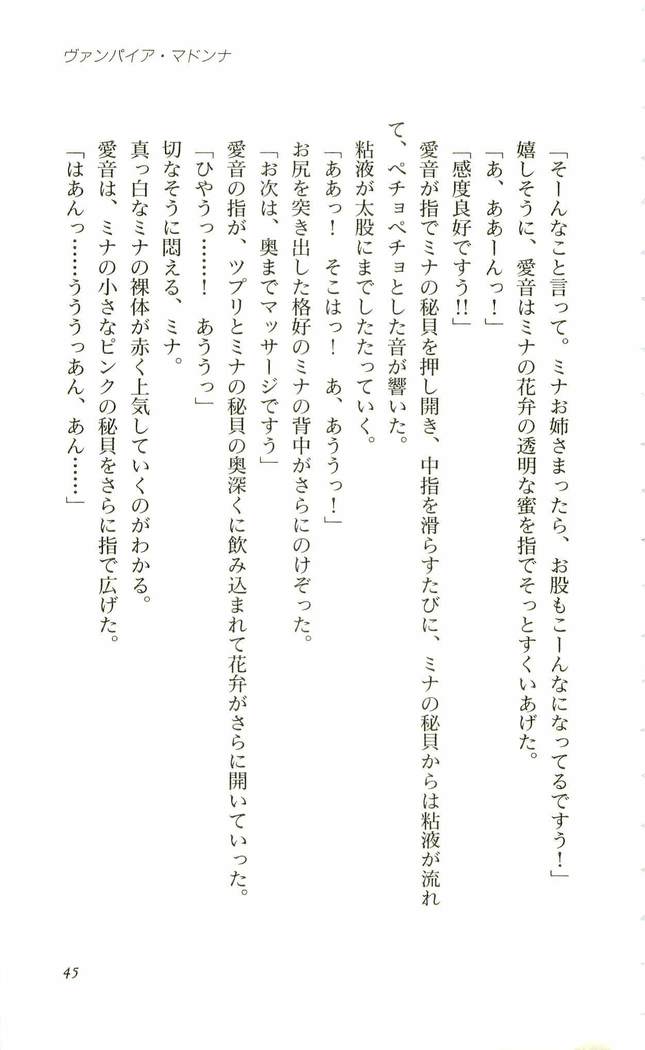 ヴァンパイア・マドンナ
「そーんなこと言って。ミナお姉さまったら、お股もこーんなになってるですう！」
嬉しそうに、愛音はミナの花弁の透明な蜜を指でそっとすくいあげた。
「あ、ああーんっ！」
「感度良好ですう!!」
愛音が指でミナの秘貝を押し開き、中指を滑らすたびに、ミナの秘貝からは粘液が流れ
て、ペチョペチョとした音が響いた。
粘液が太股にまでしたたっていく。
「ああっ！　そこはっ！　あ、あううっ！」
お尻を突き出した格好のミナの背中がさらにのけぞった。
「お次は、奥までマッサージですう」
愛音の指が、ツプリとミナの秘貝の奥深くに飲み込まれて花弁がさらに開いていった。
「ひやうっ……！　あううっ」
切なそうに悶える、ミナ。
真っ白なミナの裸体が赤く上気していくのがわかる。
愛音は、ミナの小さなピンクの秘貝をさらに指で広げた。
「はあんっ……うううっあん、あん……」
45